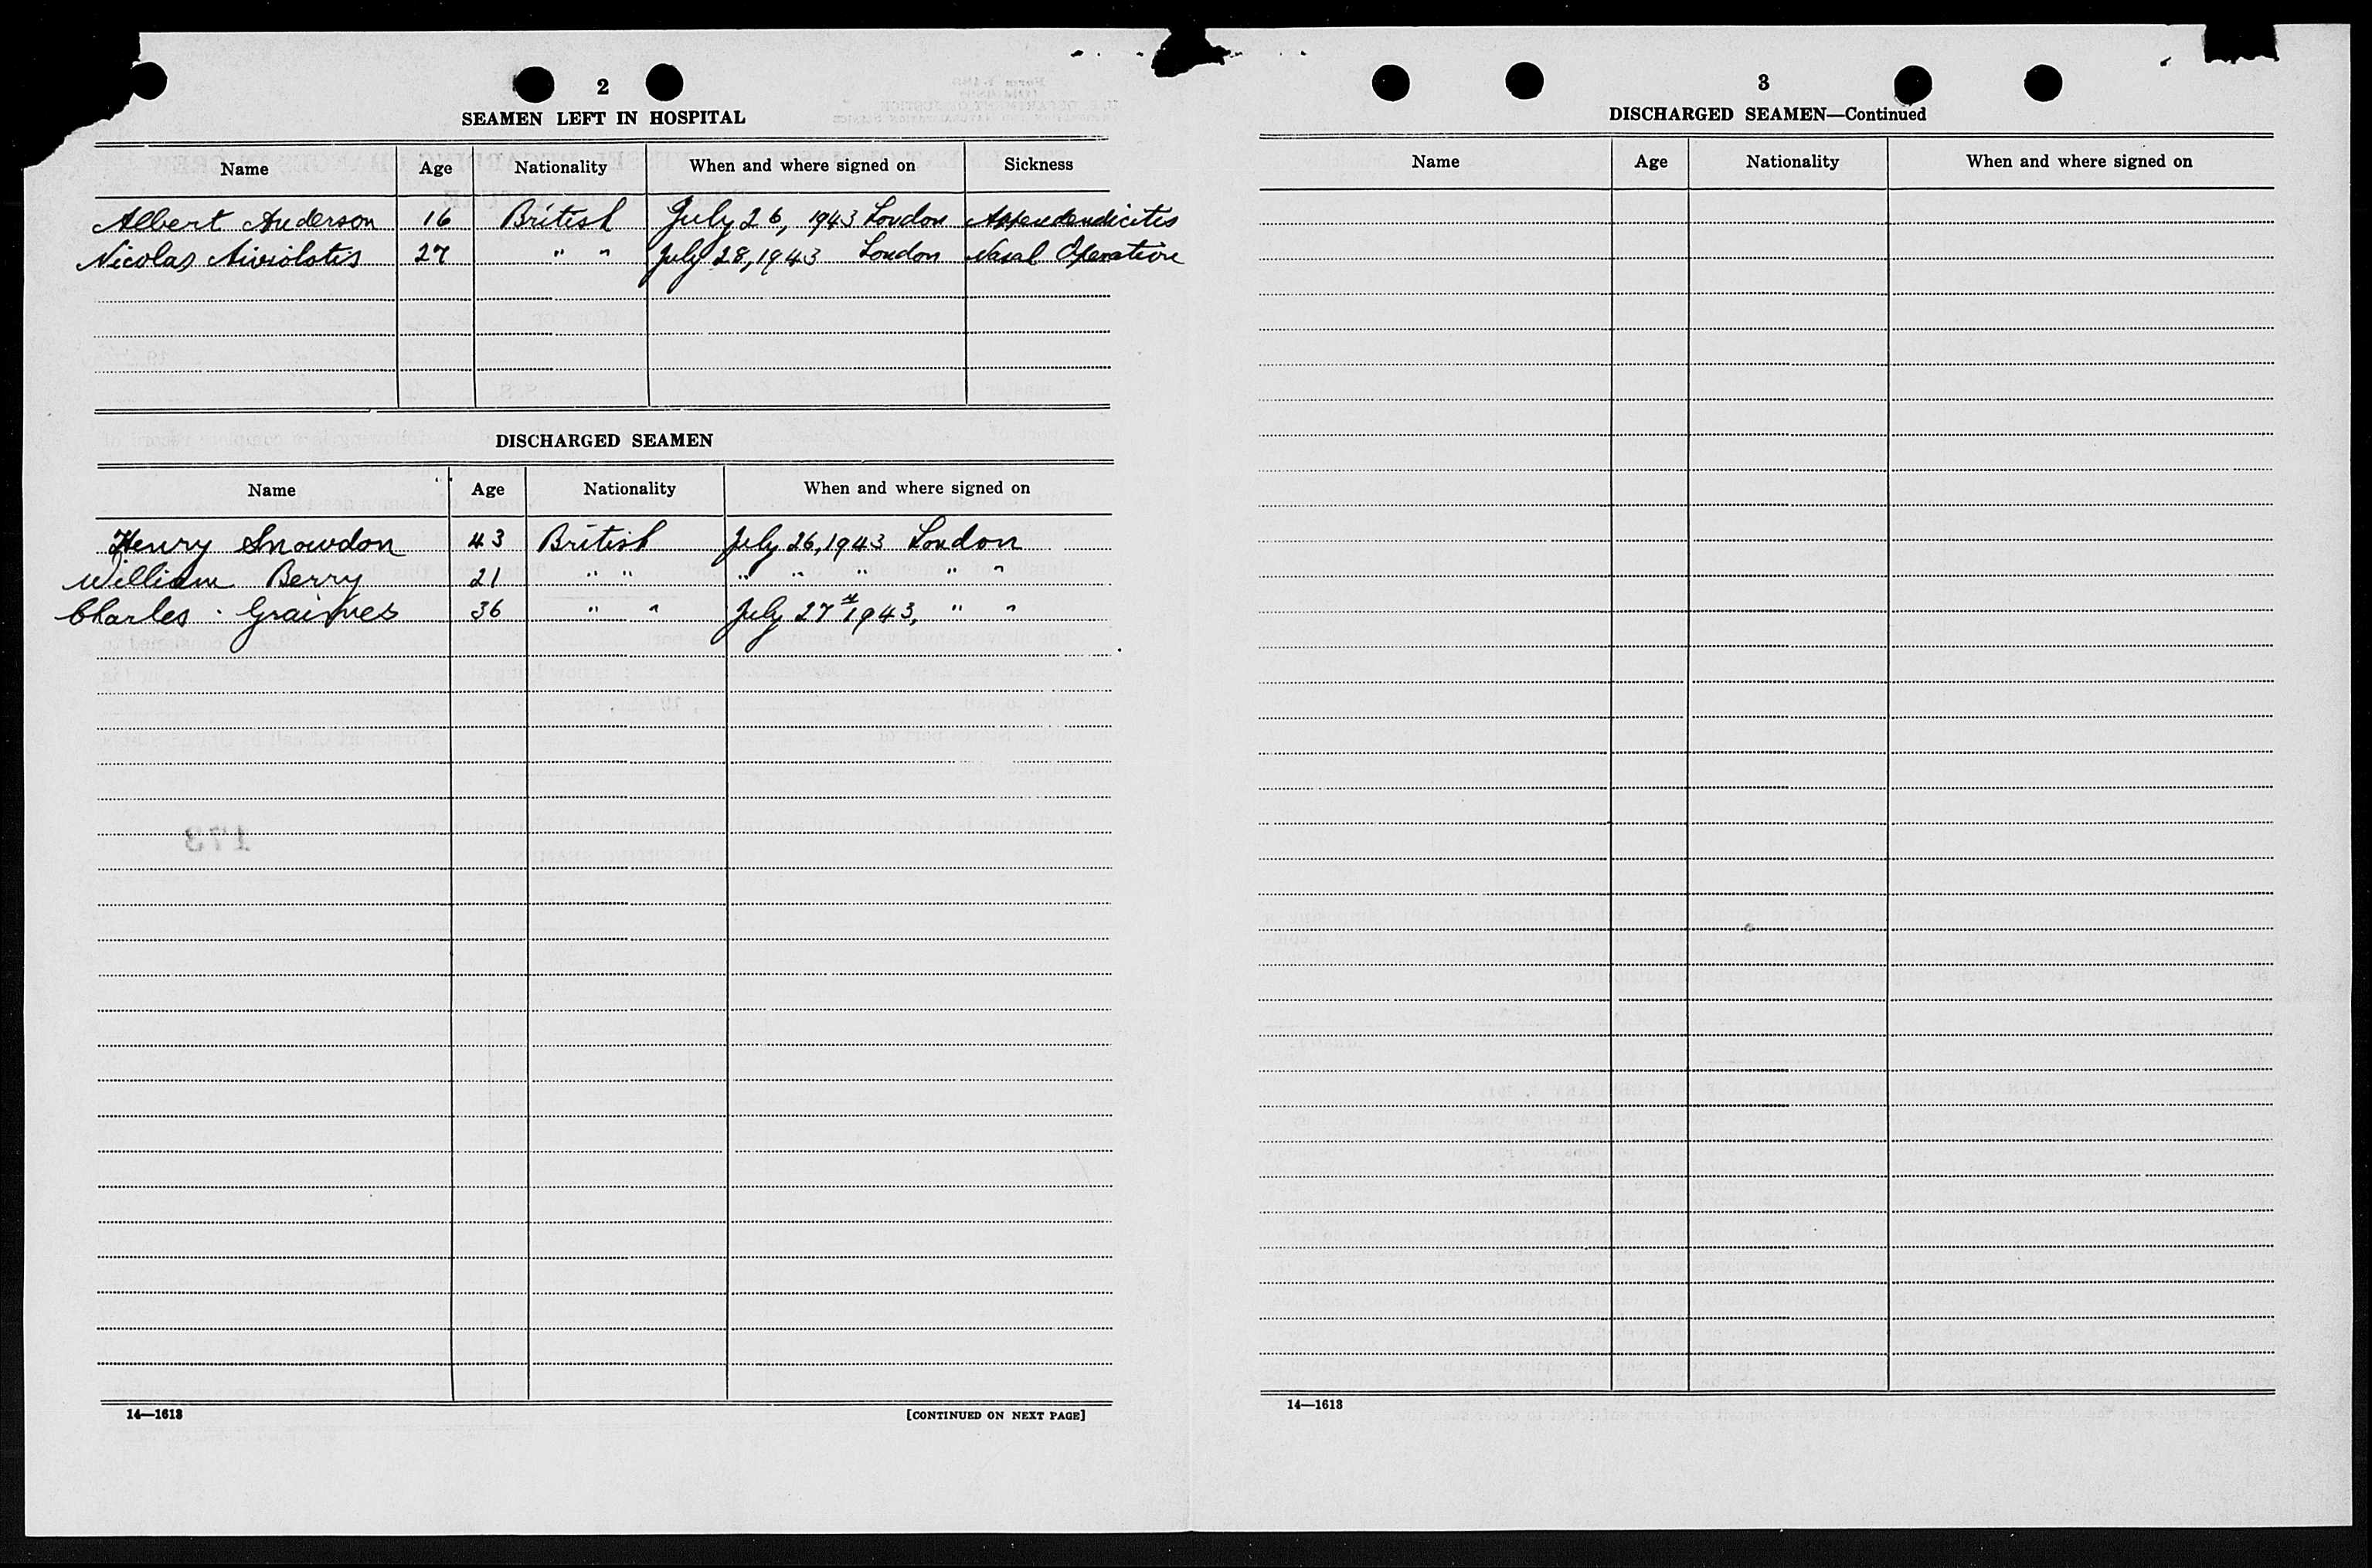 2
SEAMEN LEFT IN HOSPITAL
Name Age Nationality When and where signed on Sickness
Albert Anderson 16 British July 26, 1943 London Appendendicites
Nicolas 27 " " July 28, 1943 London Nasal Operation
DISCHARGED SEAMEN
Name Age Nationality When and where signed on
Henry Snowdon 43 British July 26, 1943 London
William Berry 21 " " " " " " "
Charles Graines 36 " " July 27th 1943, " "
173
14—1613 [CONTINUED ON NEXT PAGE]
3
DISCHARGED SEAMEN—Continued
Name Age Nationality When and where signed on
14—1613